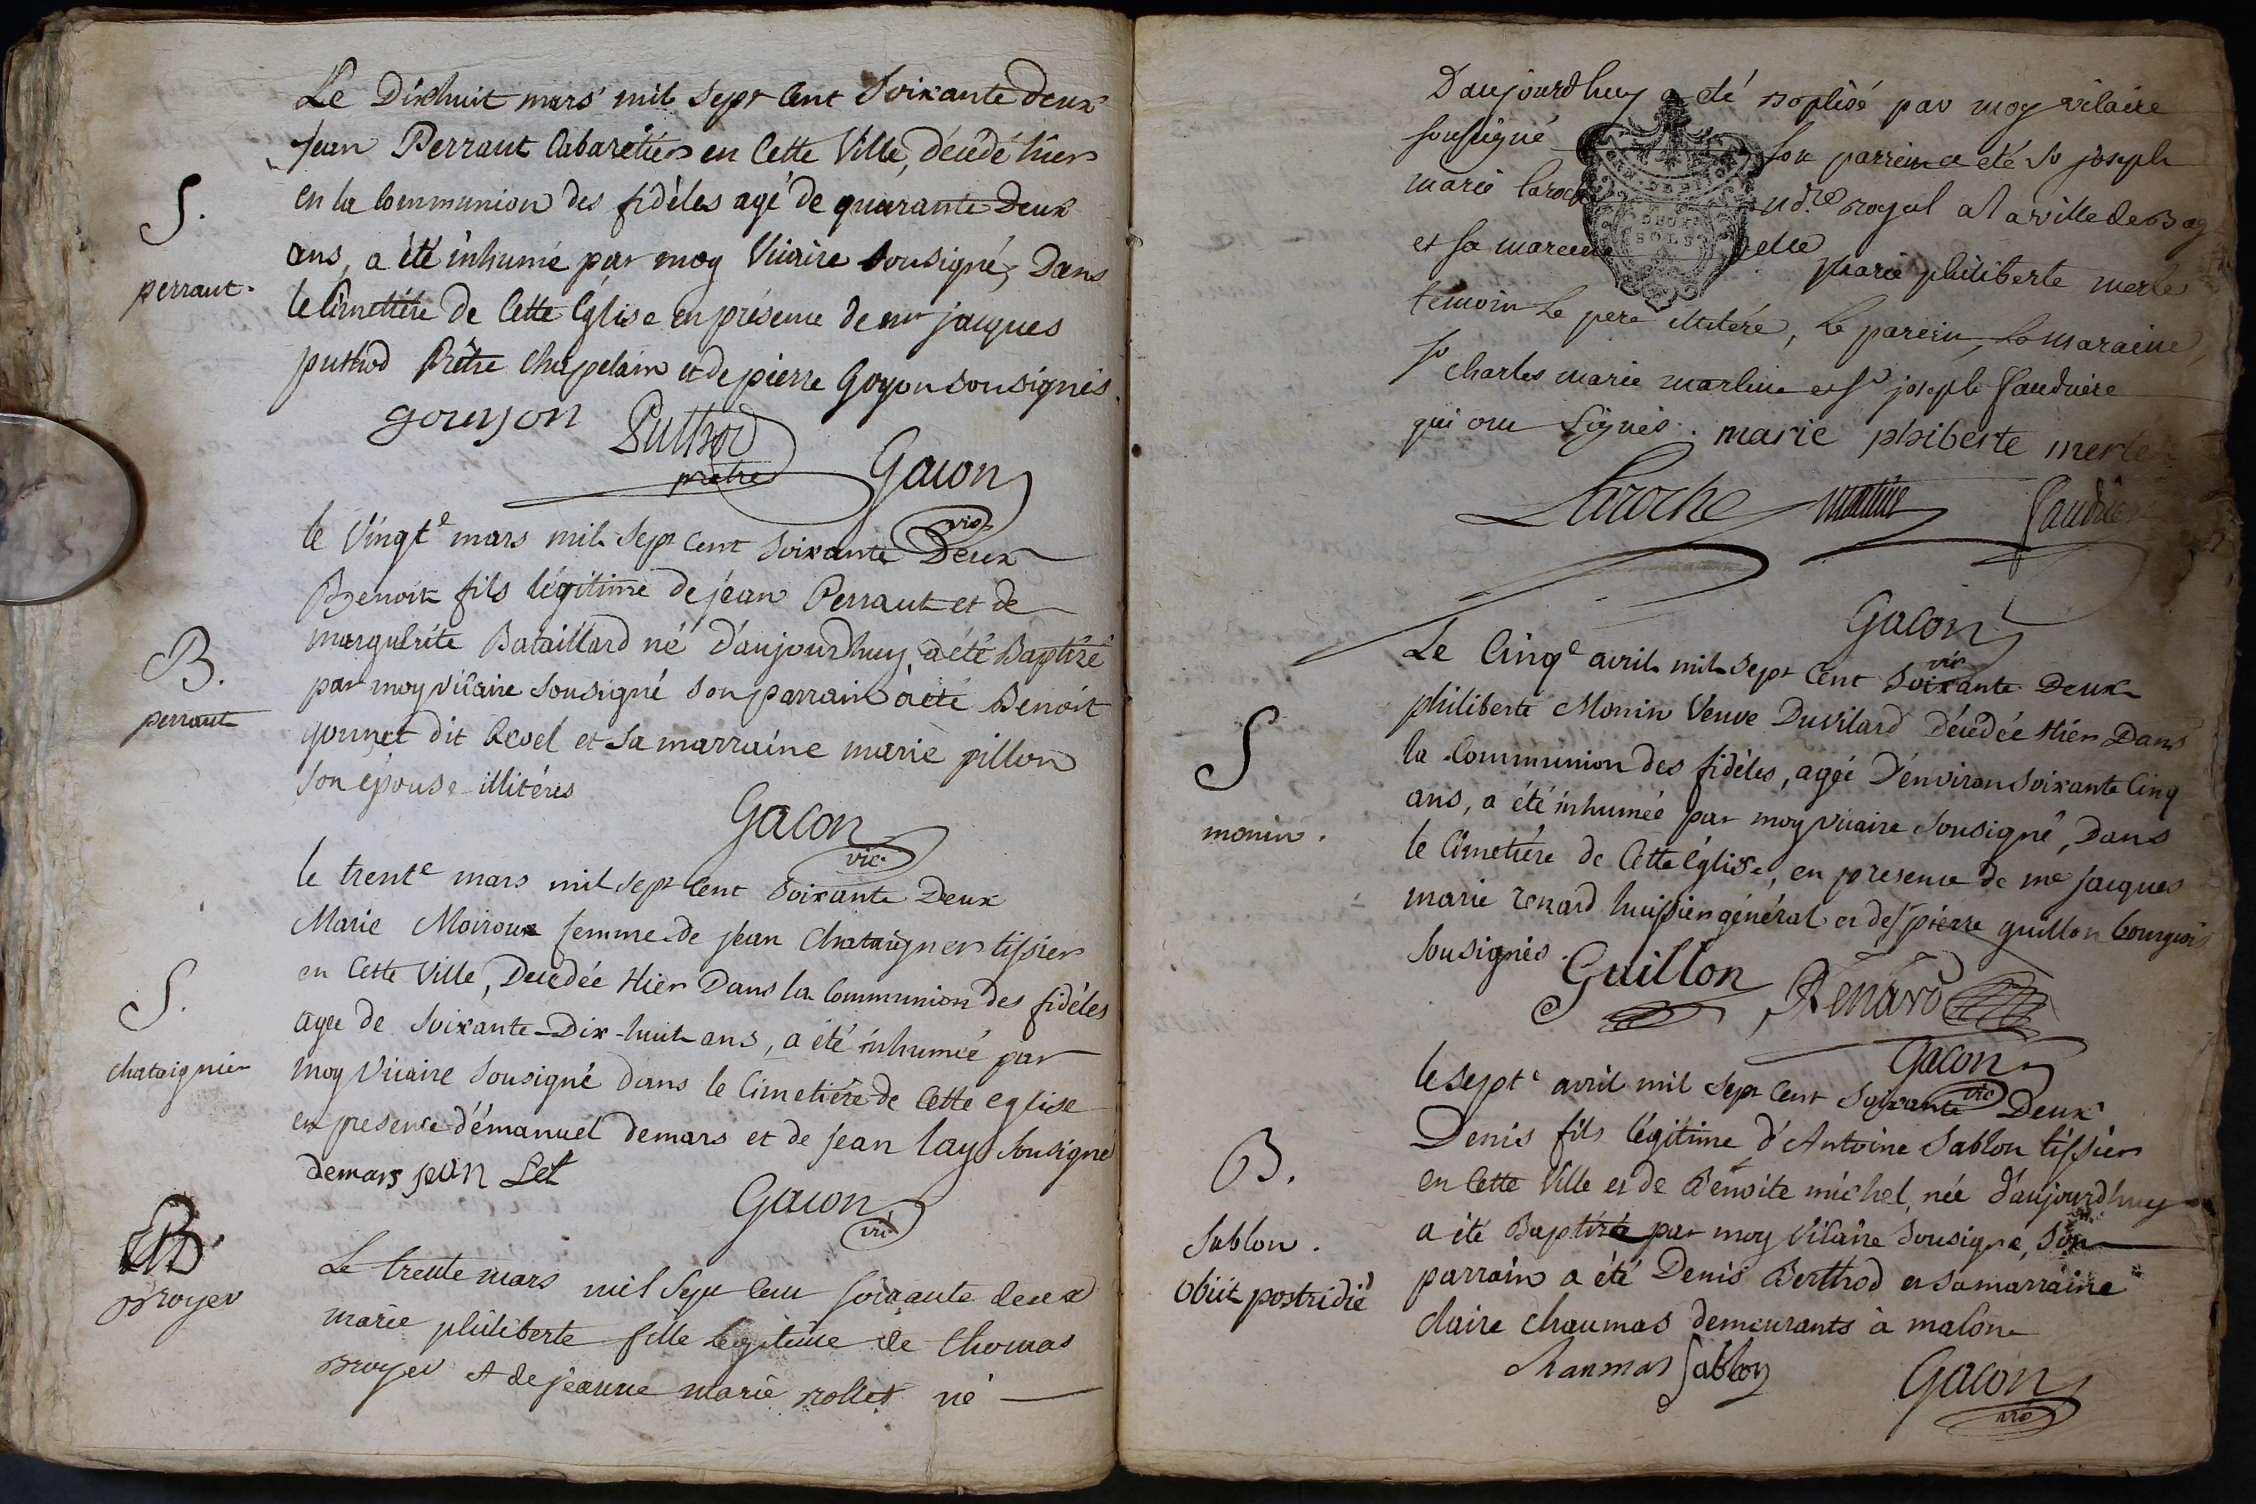 Le Dixhuit mars mil sept Cent Soixante deux
S.
perraut.
Jean Perraut Cabaretier en Cette Ville, décédé hier
en la Communion des fidèles agé de quarante Deux
ans, a été inhumé par moy Vicaire Sousigné, Dans
le Cimettiére de Cette Eglise en présence de mr jacques
puthod Prêtre Chapelain et de pierre Goyon sousignés.
gouyon Puthod prêtre Gacon vic
le Vingte mars mil Sept Cent Soixante Deux
B.
perraut
Benoit fils légitime de jean Perraut et de
marguerite Bataillard né D'aujourdhuy, a été Baptizé
par moy vicaire Sousigné Son parrain a été Benoit
gonnet dit Revel et Sa marraine marie pillon
Son épouse illitérés
Gacon vic.
le trente mars mil sept Cent Soixante Deux
S.
chataignier
Marie Moiroux femme de jean Chataigner tissier
en Cette Ville, Decedée Hier Dans la Communion des fidèles
agée de Soixante-Dix-huit ans, a été inhumée par
moy Vicaire Sousigné dans le Cimetière de Cette eglise
en presence d'émanuel demars et de jean lay Sousigné
demars jean Let
Gacon vic
B.
Broyer
Le trente mars mil Sept Cent soixante deux
marie philiberte fille legitime de thomas
Broyer et de jeanne marie rollet né
D'aujourdhuy a été baptisé par moy vicaire
sousigné son parrein a été Sr joseph
marie laroche royal a la ville de Bag
et sa mareine elle marie philiberte merle
temoin le pere illitéré, le parein, la maraine,
Sr charles marie martine et Sr joseph Sauduiere
qui ont Signés. marie phiberte merle
Laroche martine
Gacon vic
Le Cinqe avril mil Sept Cent Soixante Deux
S
monin.
philiberte Monin Veuve Duvilard Décédée Hier Dans
la Communion des fidèles, agée D'environ Soixante Cinq
ans, a été inhumée par moy Vicaire Sousigné, Dans
le Cimetiére de Cette Eglise, en presence de me jacques
marie renard huissier général et de Sr pierre guillon bourgeois
Sousignés.
Guillon Renard
Gacon vic
le Septe avril mil Sept Cent Soixante Deux
B.
Sablon.
Obiit postridié
Denis fils légitime d'Antoine Sablon tissier
en Cette Ville et de Benoite michel, née d'aujourdhuy
a été Baptizé par moy Vicaire Sousigné, Son
parrain a été Denis Berthod et Sa marraine
claire chaumas demeurants à malon
Chaumas Sablon Gacon vic